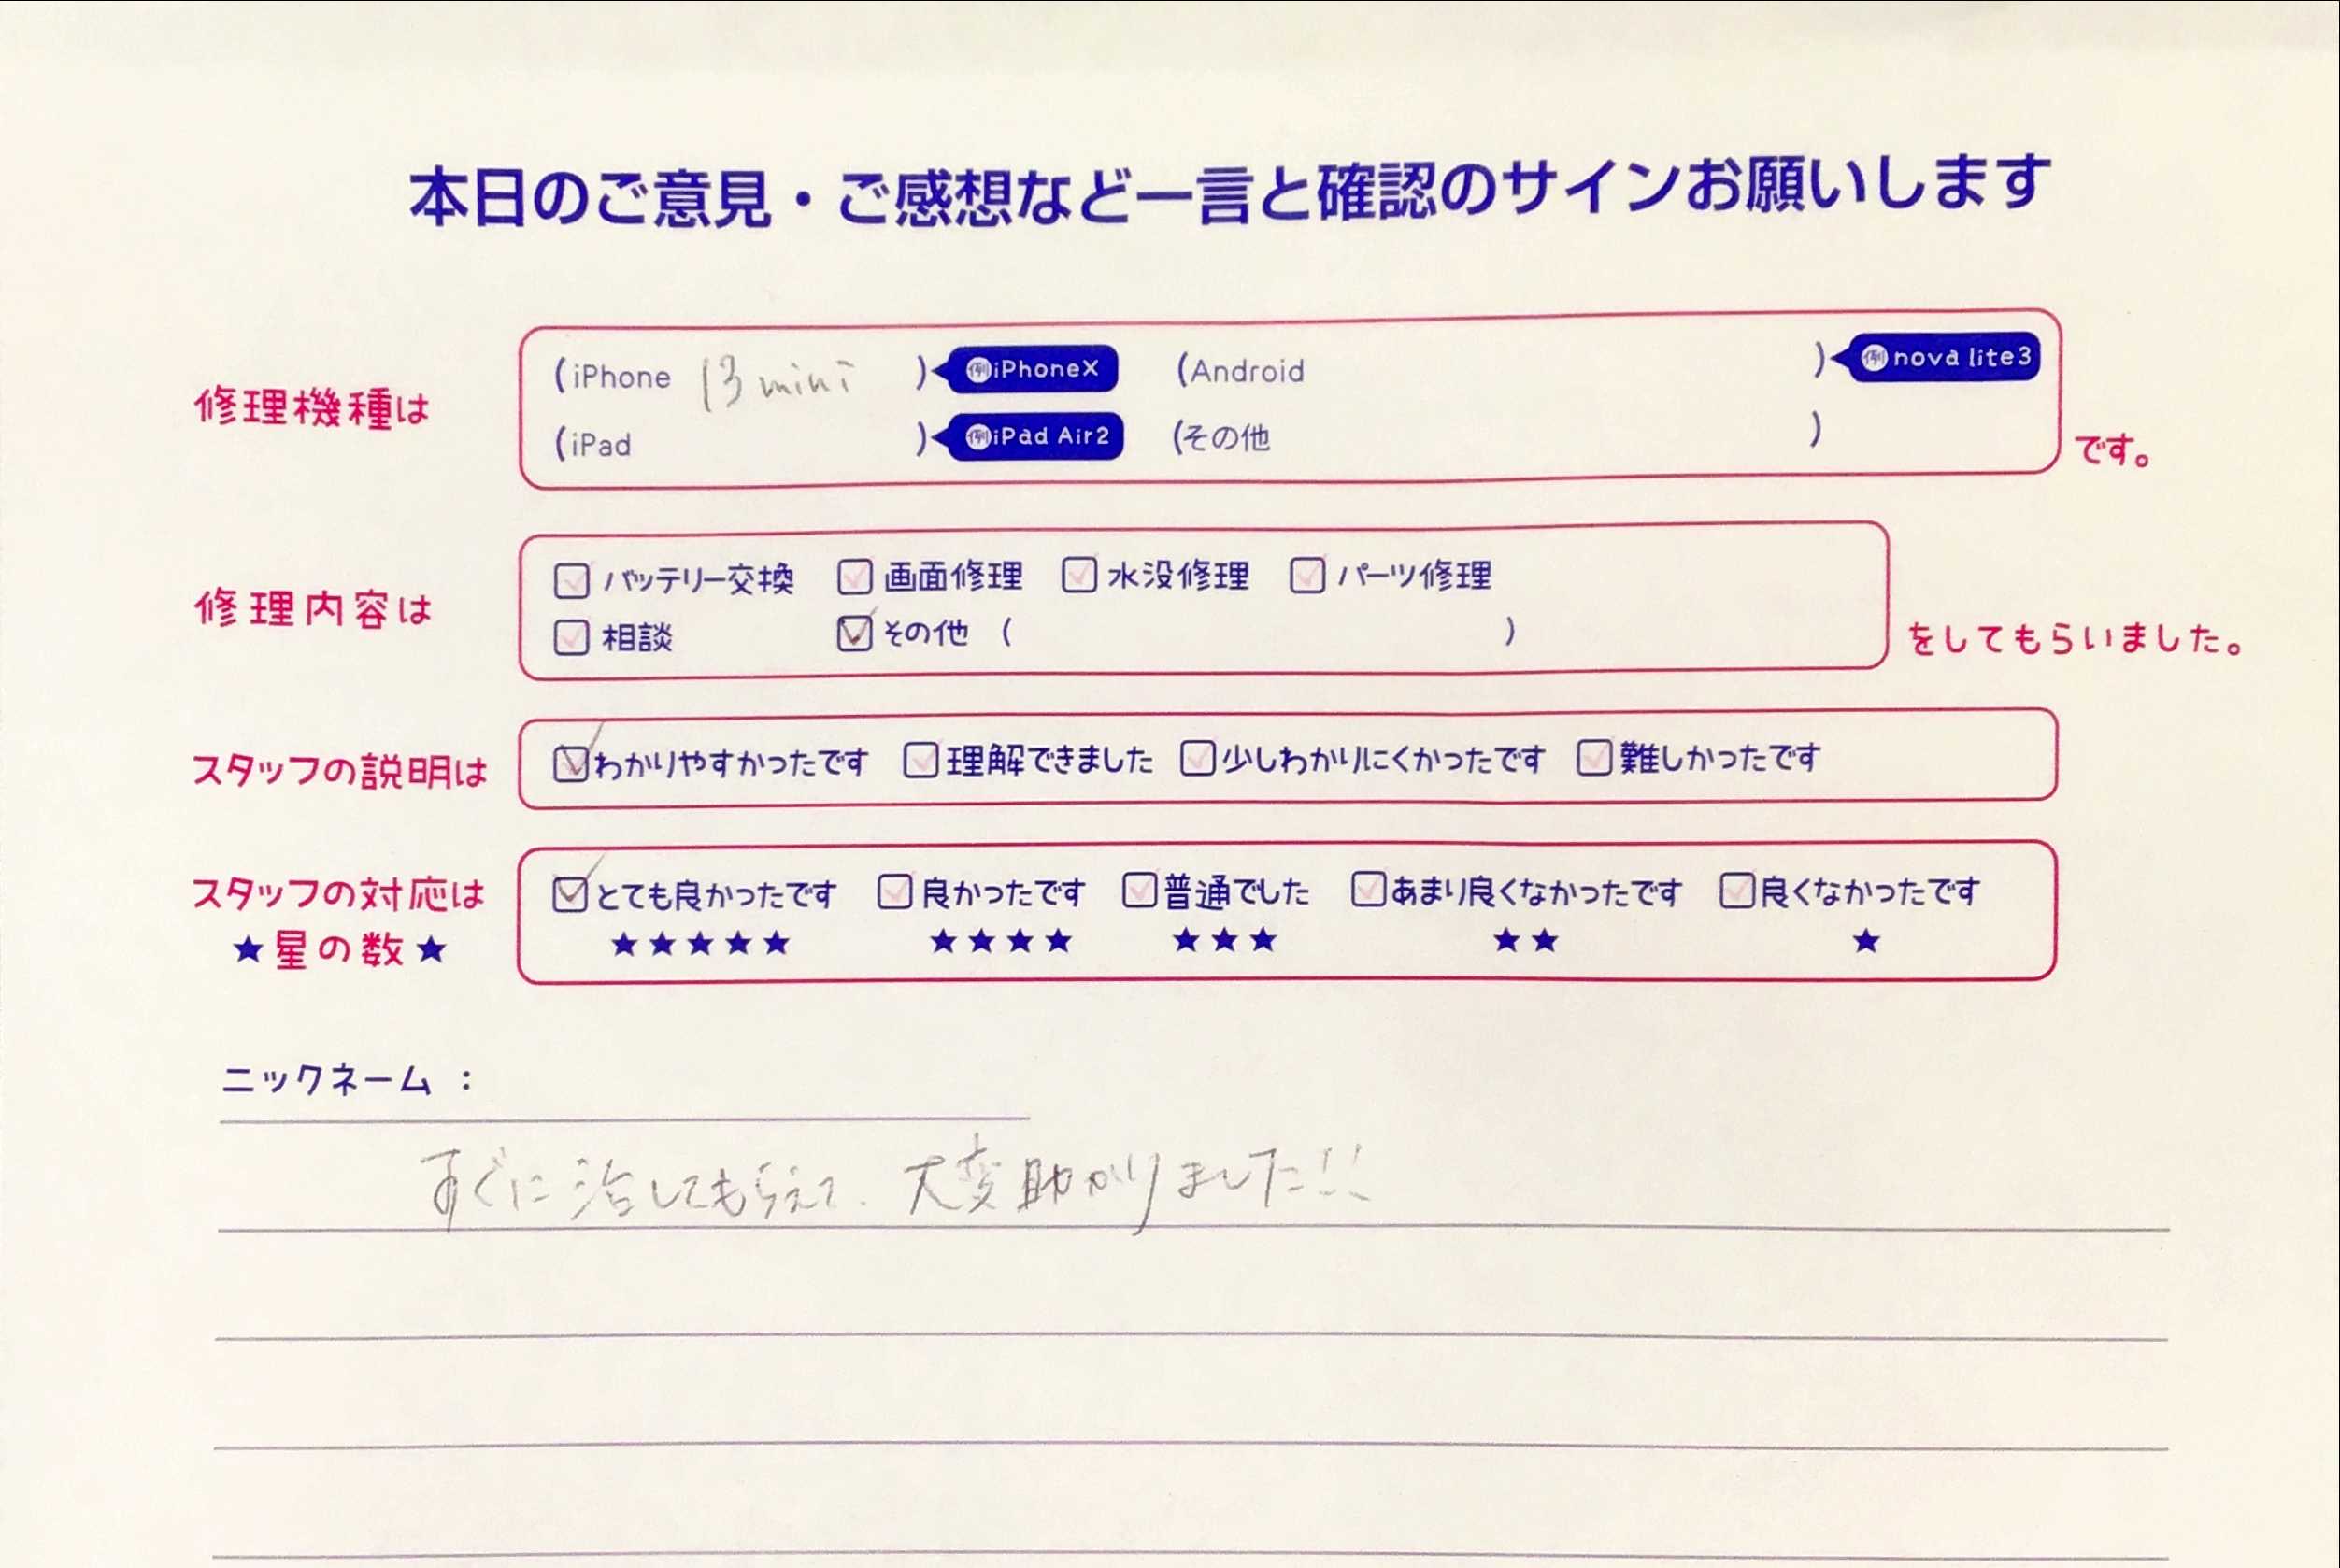 本日のご意見・ご感想など一言と確認のサインお願いします
修理機種は
(iPhone 13 mini ) 例iPhoneX (Android ) 例nova lite3
(iPad ) 例iPad Air2 (その他 )
です。
修理内容は
バッテリー交換 画面修理 水没修理 パーツ修理
相談 その他 ( )
をしてもらいました。
スタッフの説明は
わかりやすかったです 理解できました 少しわかりにくかったです 難しかったです
スタッフの対応は
★星の数★
とても良かったです 良かったです 普通でした あまり良くなかったです 良くなかったです
★★★★★ ★★★★ ★★★ ★★ ★
ニックネーム :
すぐに治してもらえて、大変助かりました!!